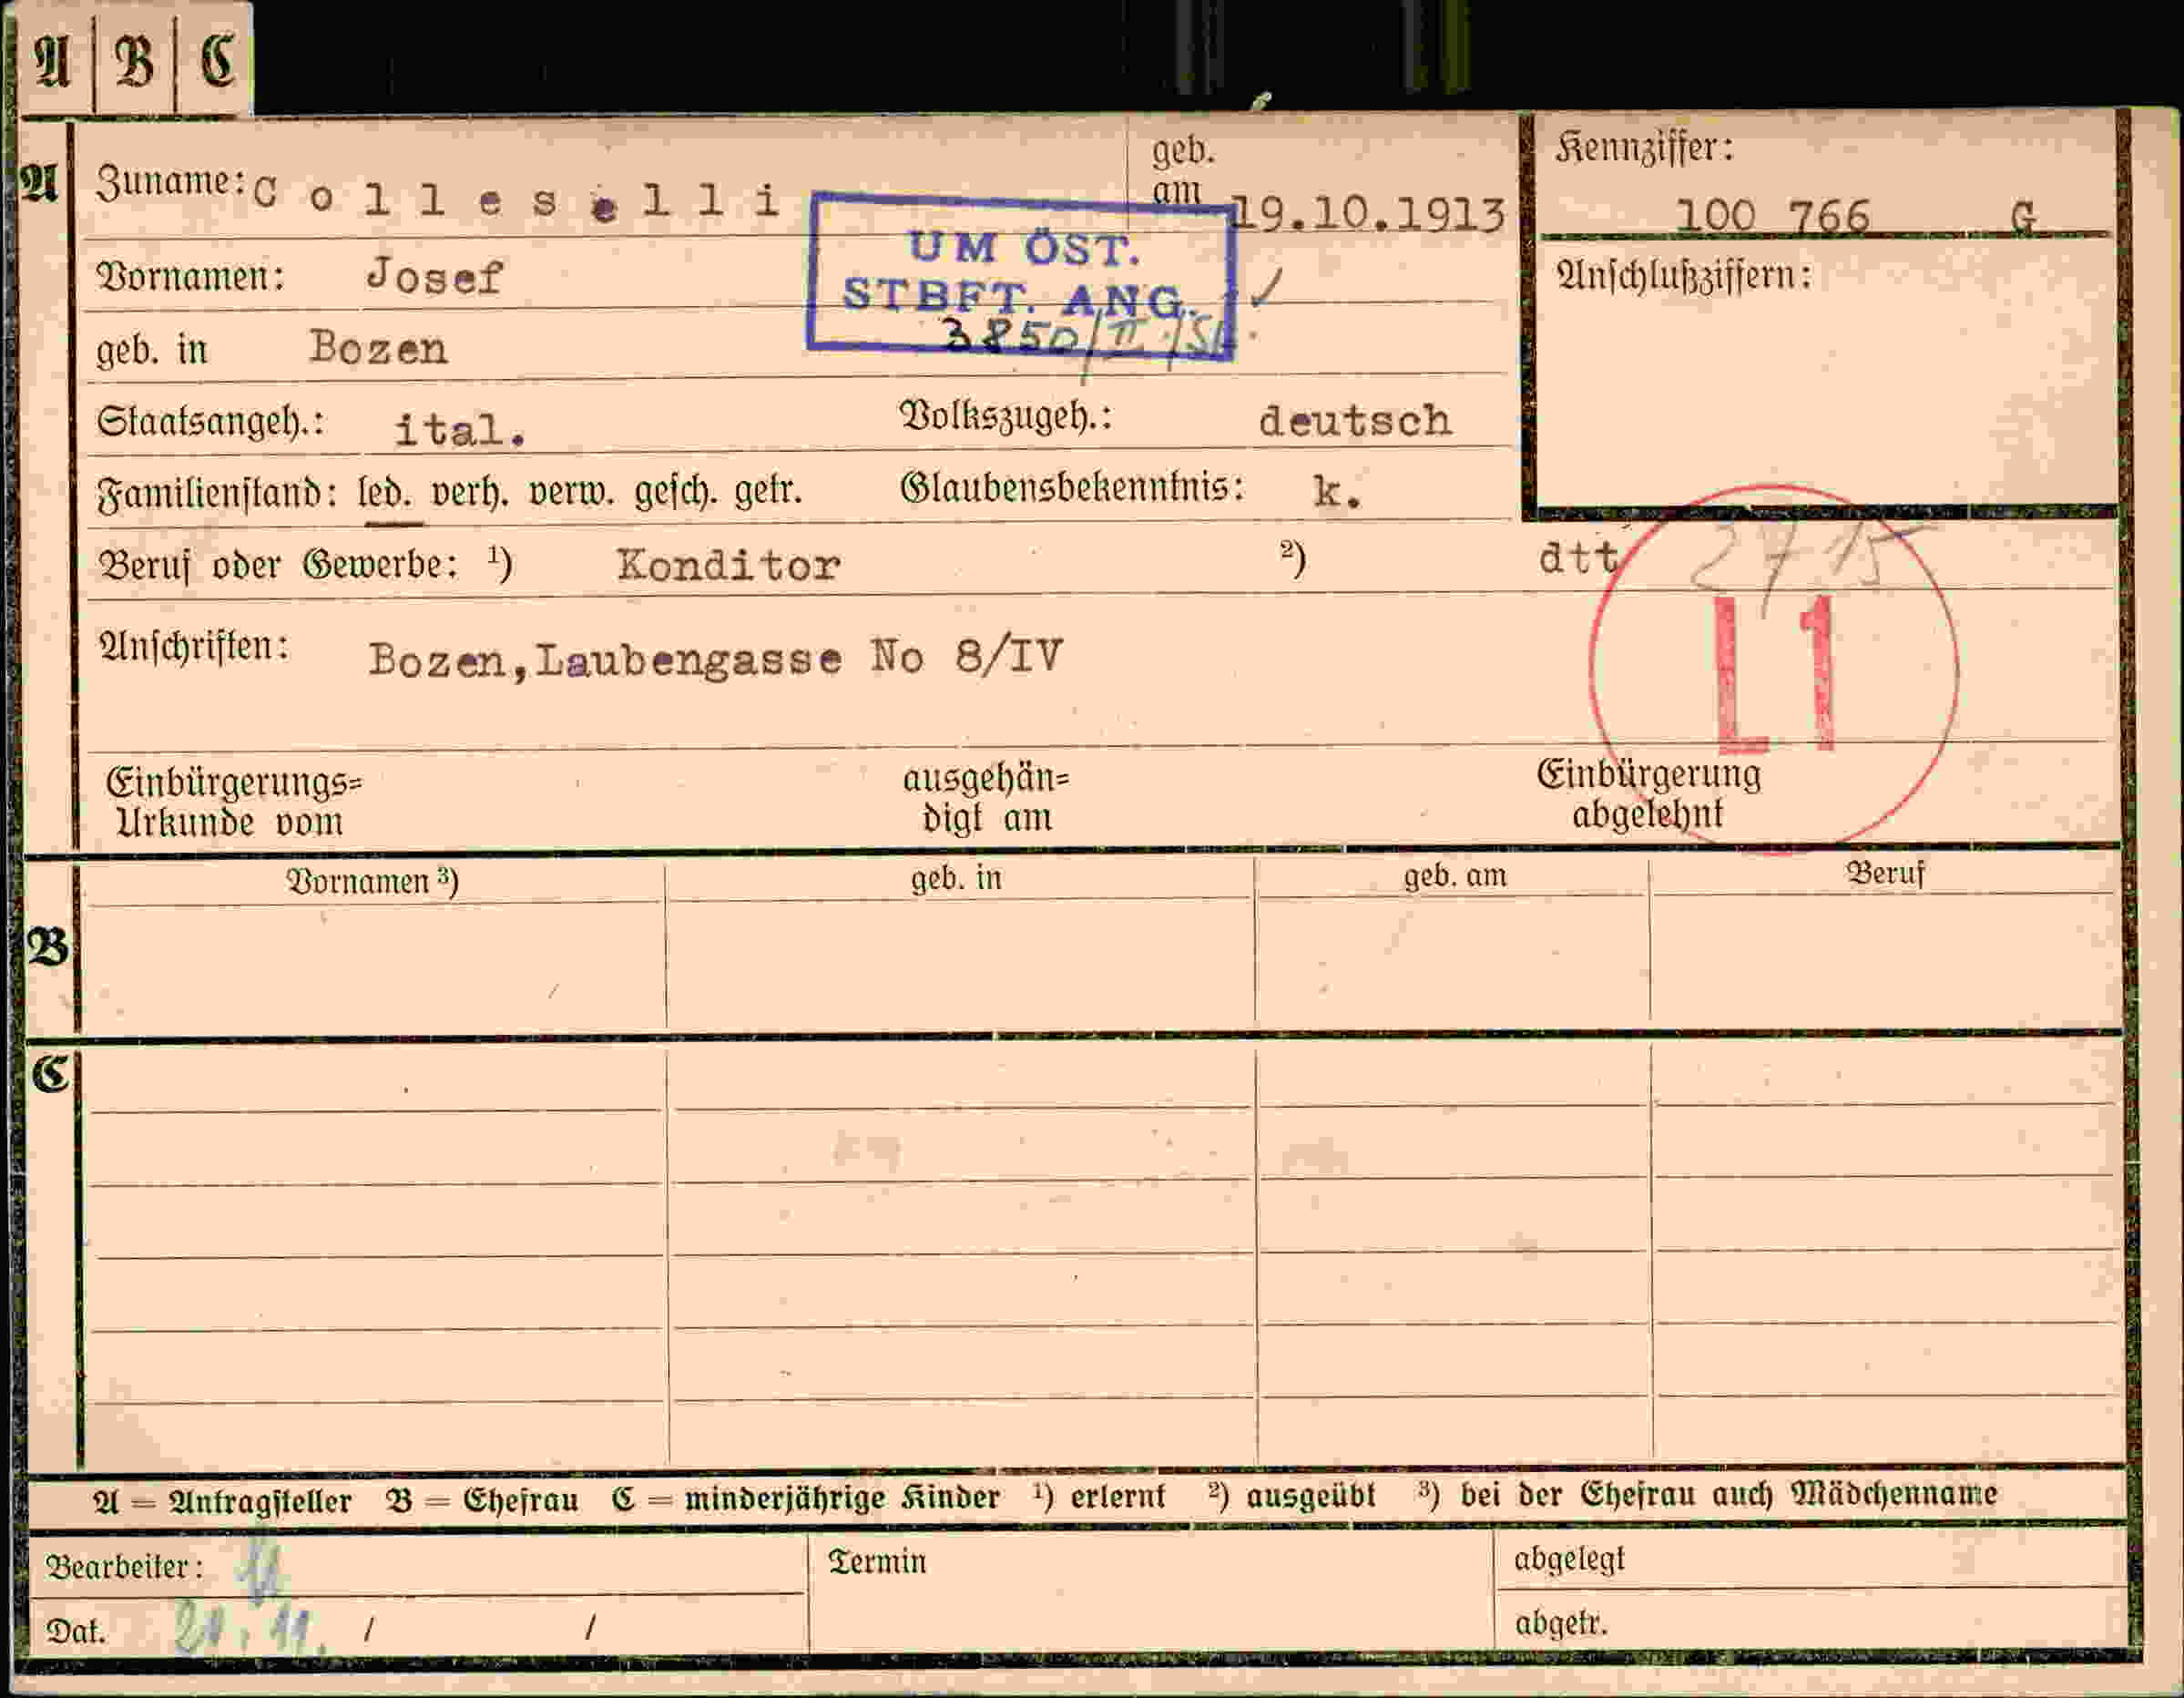 A B C
A Zuname: Colleselli geb. am 19.10.1913
Kennziffer:
100 766 G
UM ÖST.
STBFT. ANG.
3850/II
Vornamen: Josef
Anschlußziffern:
geb. in Bozen
Staatsangeh.: ital. Volkszugeh.: deutsch
Familienstand: led. verh. verw. gesch. getr. Glaubensbekenntnis: k.
Beruf oder Gewerbe: ¹) Konditor ²) dtt
L1
Anschriften: Bozen,Laubengasse No 8/IV
Einbürgerungs=
Urkunde vom
ausgehän=
digt am
Einbürgerung
abgelehnt
Vornamen ³) geb. in geb. am Beruf
B
C
A = Antragsteller B = Ehefrau C = minderjährige Kinder ¹) erlernt ²) ausgeübt ³) bei der Ehefrau auch Mädchenname
Bearbeiter: Termin abgelegt
Dat. 21.11. / / abgetr.